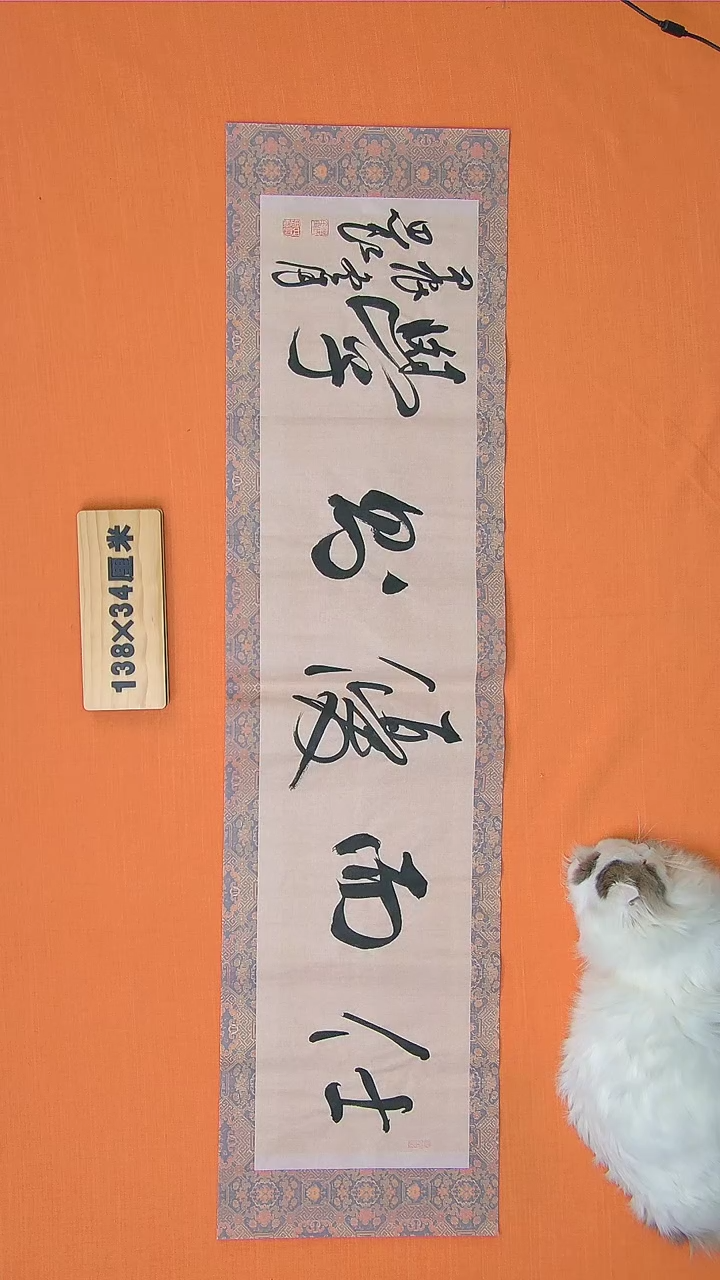 仕而優則學
138×34厘米